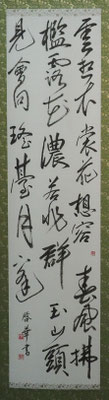 雲想衣裳花想容春風拂
檻露華濃若非群玉山頭
見會向瑤臺月下逢
書